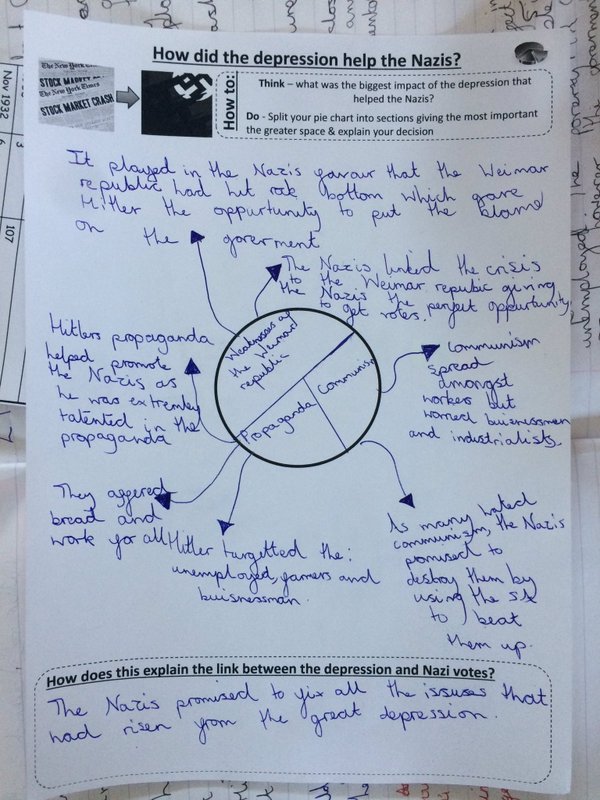 How did the depression help the Nazis?
The New York Times
STOCK MARKET CRASH
The New York Times
STOCK MARKET CRASH
How to:
Think – what was the biggest impact of the depression that
helped the Nazis?
Do - Split your pie chart into sections giving the most important
the greater space & explain your decision
It played in the Nazis favour that the Weimar
republic had hit rock bottom which gave
Hitler the oppurtunity to put the blame
on the goverment
The Nazis linked the crisis
to the Weimar republic giving
the Nazis the perfect oppertunity
to get votes.
Weaknesses of
the Weimar
republic
Communism
Propaganda
Hitlers propaganda
helped promote
the Nazis as
he was extremley
talented in the
propaganda
communism
spread
amongst
workers but
worried businessmen
and industrialists.
They offered
bread and
work for all
Hitler turgetted the:
unemployed, farmers and
buisnessman.
As many hated
communism, the Nazis
promised to
destroy them by
using the SA
to beat
them up.
How does this explain the link between the depression and Nazi votes?
The Nazis promised to fix all the issues that
had risen from the great depression.
Nov 1932
6
3
107
unemployed. The